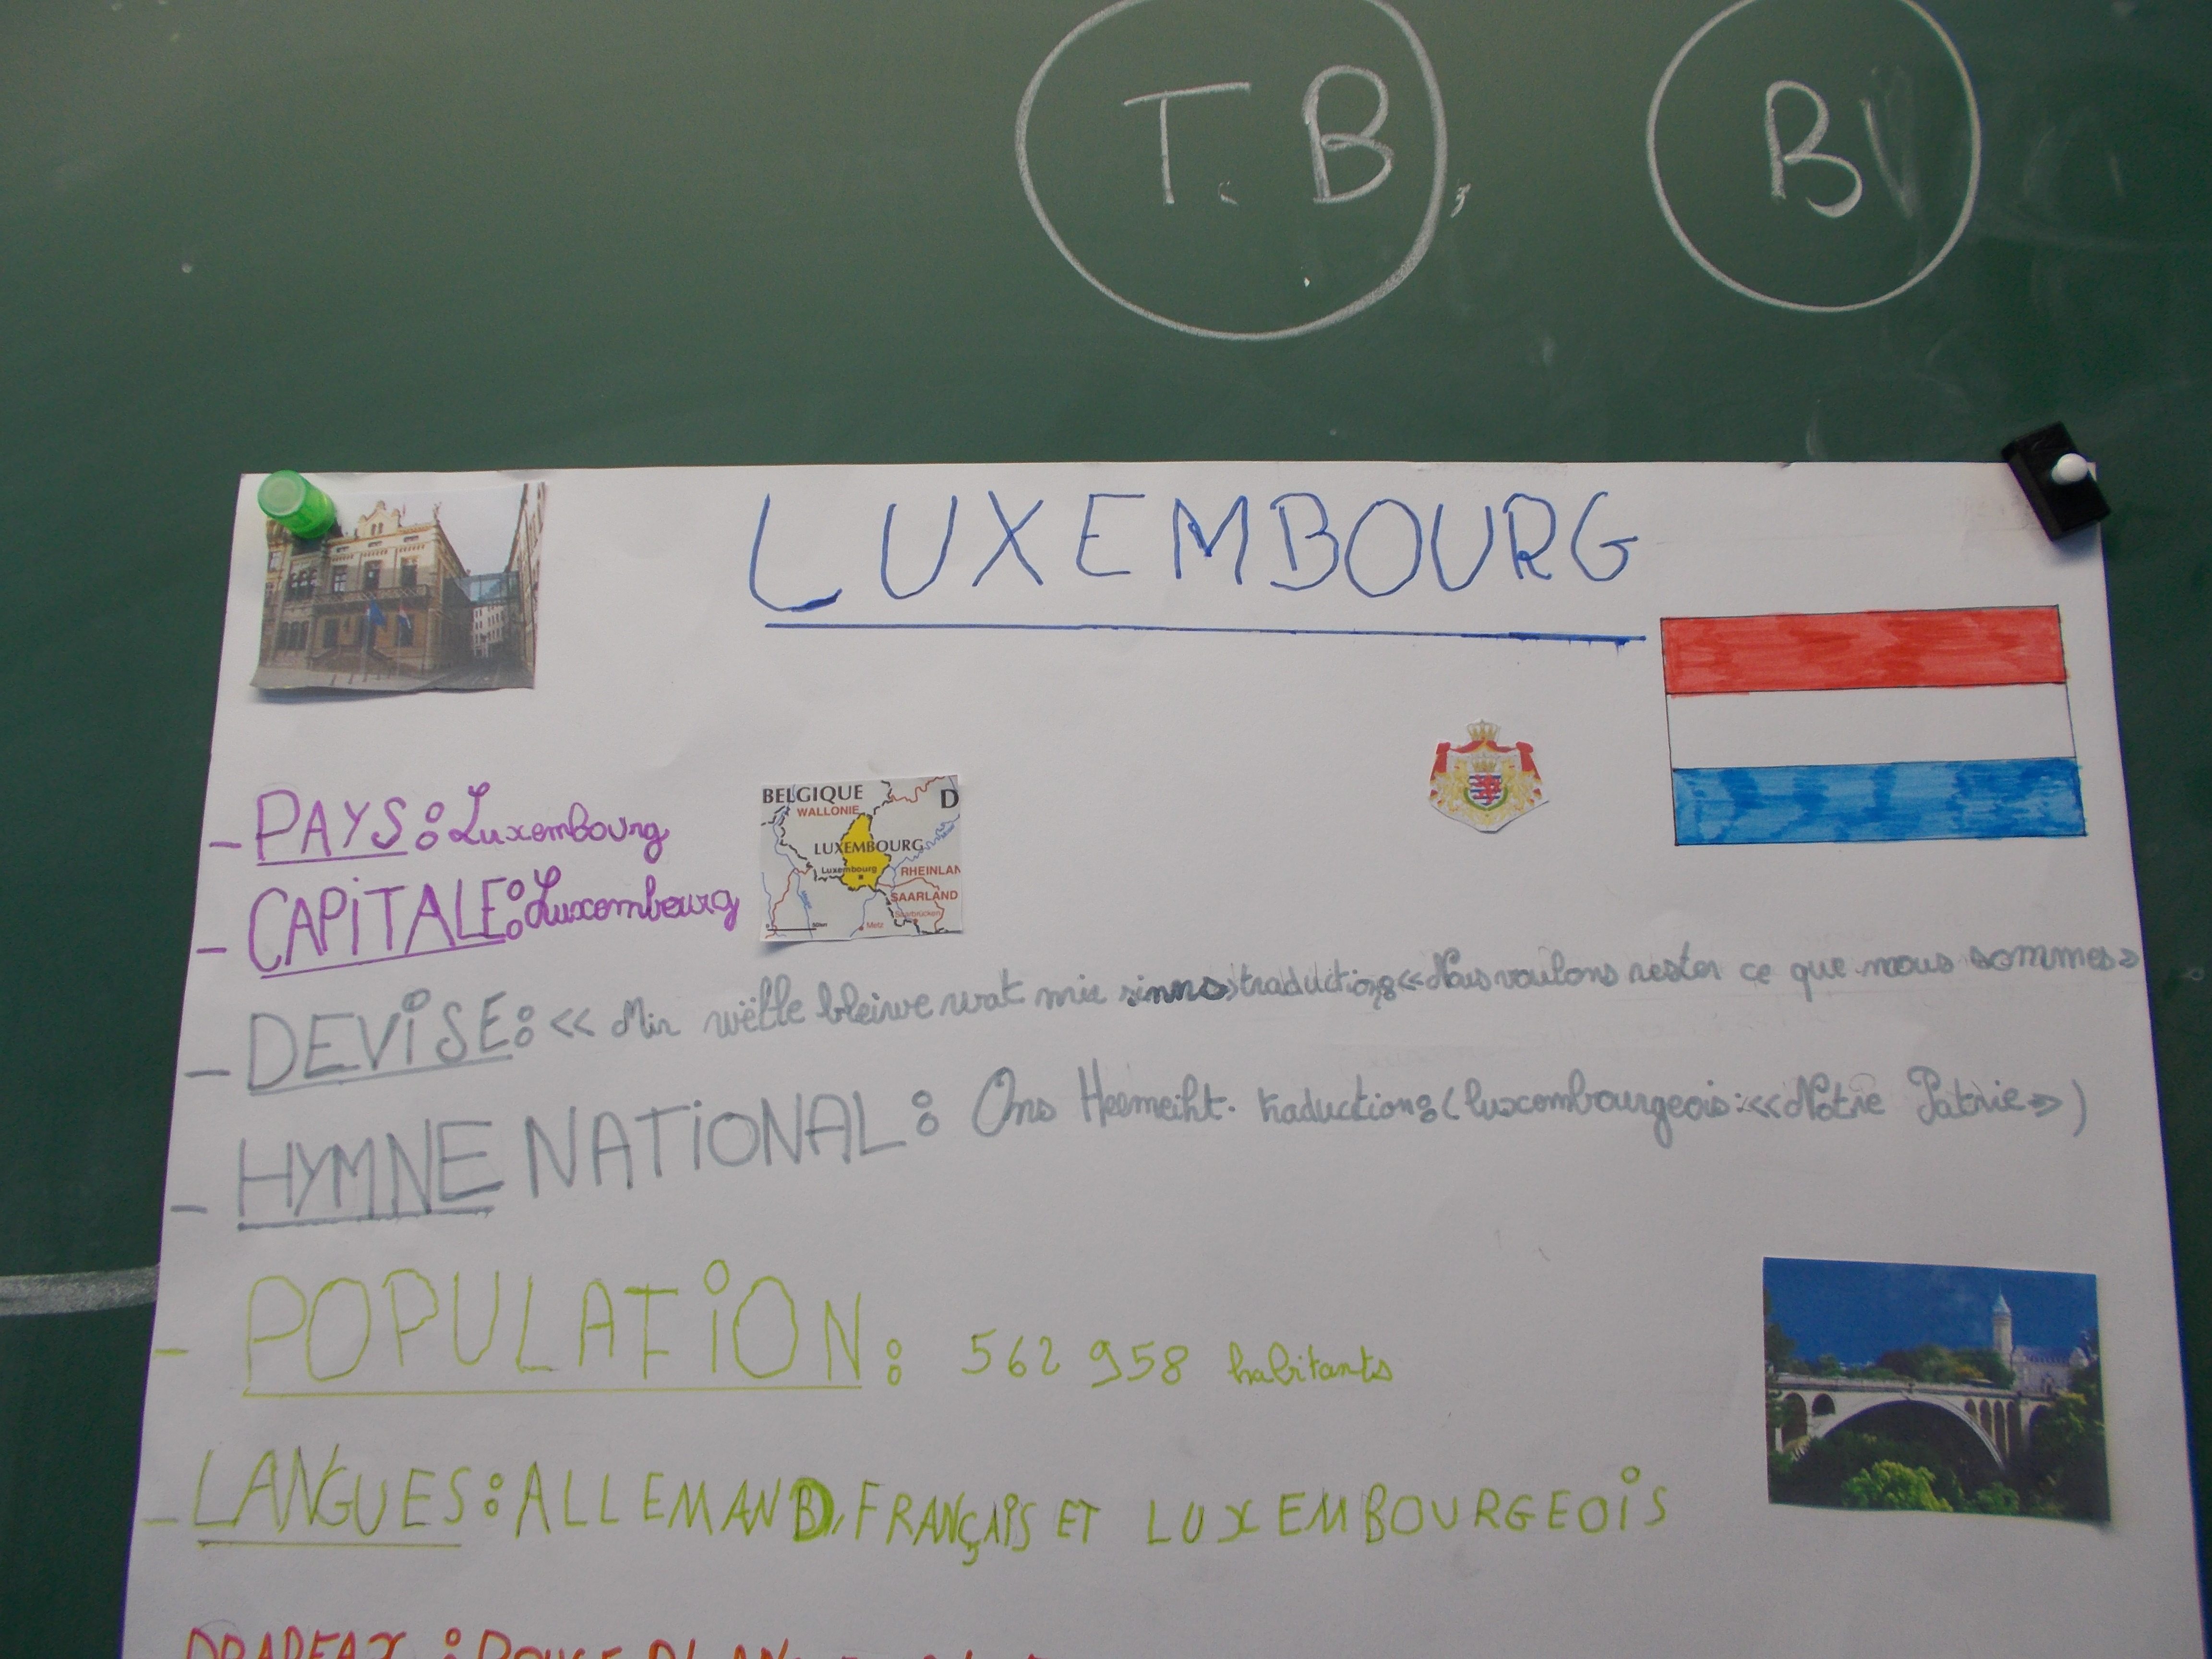 T. B
B
LUXEMBOURG
- PAYS : Luxembourg
- CAPITALE : Luxembourg
BELGIQUE
D
WALLONIE
LUXEMBOURG
Luxembourg
RHEINLAN
SAARLAND
Saarbrücken
Metz
- DEVISE : << Mir wëlle bleiwe wat mir sinn>> traduction : <<Nous voulons rester ce que nous sommes>>
- HYMNE NATIONAL : Ons Heemeiht. traduction : (luxembourgeois : <<Notre Patrie>>)
- POPULATION : 562 958 habitants
- LANGUES : ALLEMAND, FRANÇAIS ET LUXEMBOURGEOIS